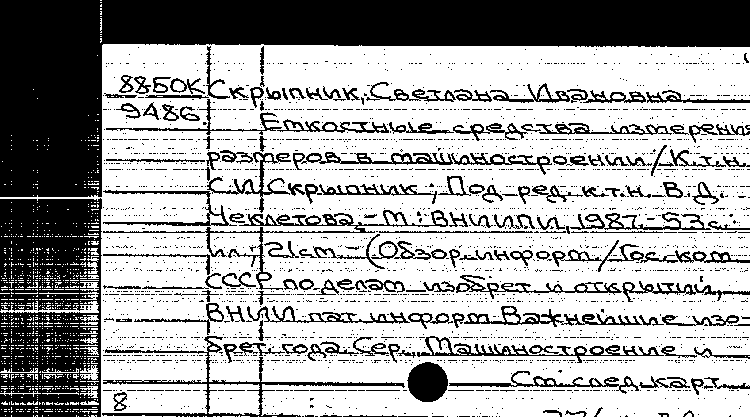 8850К Скрыпник, Светлана Ивановна
9486. Емкостные средства измерения
размеров в машиностроении / К.т.н.
С.И. Скрыпник ; Под ред. к.т.н. В.Д.
Чеклетова. - М. : ВНИИПИ, 1987. - 53 с. :
ил ; 21 см. - (Обзор. информ. / Гос. ком
СССР по делам изобрет. и открытий,
ВНИИ пат. информ. Важнейшие изо-
брет. года. Сер. Машиностроение и
См. след. карт.
8